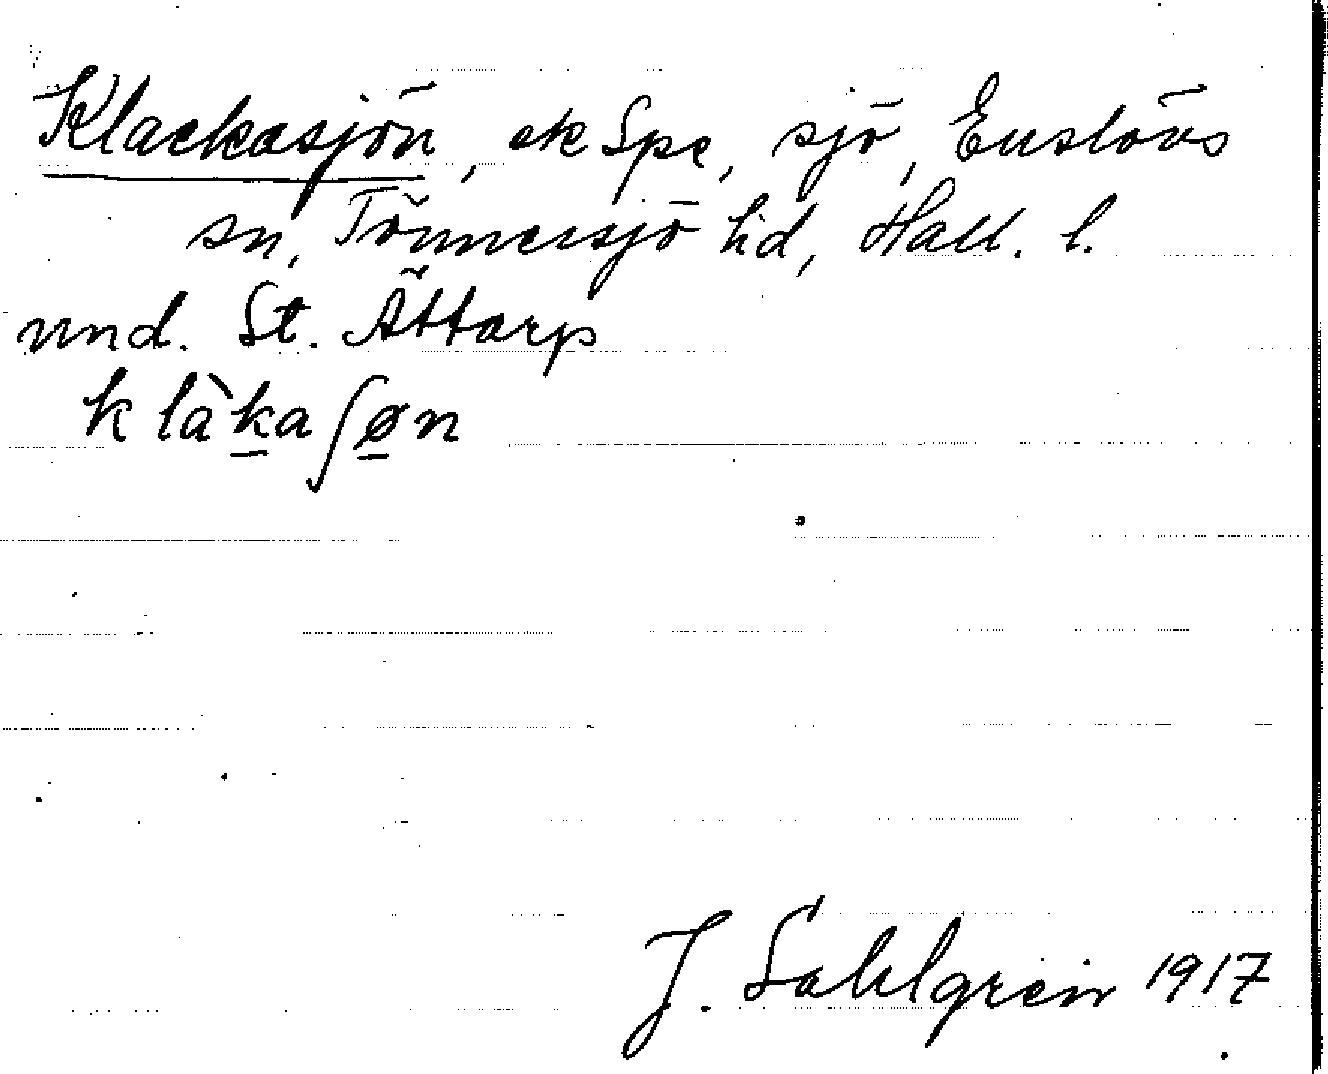 Klackasjön, ek Spe, sjö, Enslövs
sn, Tönnersjö hd, Hall. l.
und. St. Ättarp
klàka∫øn
J. Sahlgren 1917